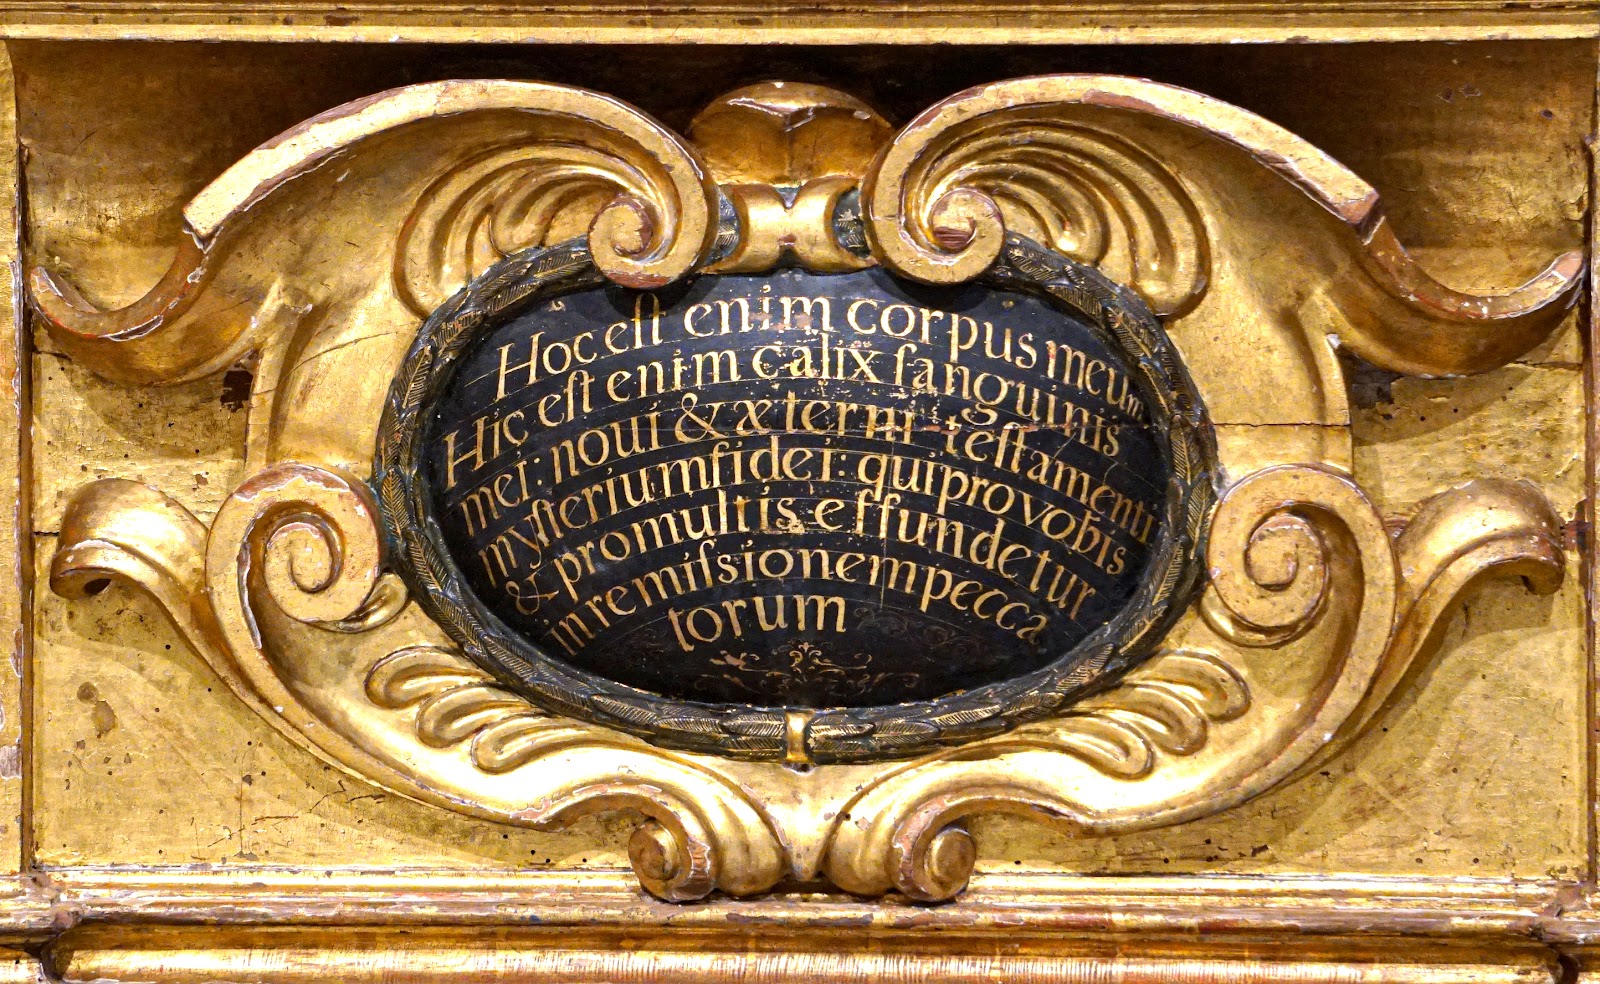 Hoc eſt enim corpus meum
Hic eſt enim calix ſanguinis
mei: noui & æterni teſtamenti
myſterium fidei: qui pro vobis
& pro multis effundetur
in remiſsionem pecca
torum